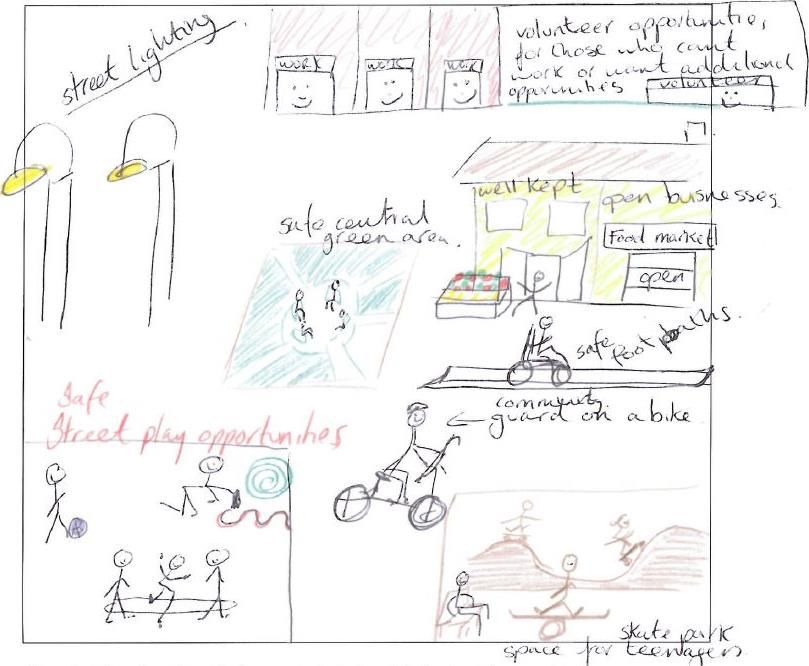 street lighting.
WORK
WORK
WORK
volunteer opportunities,
for those who can't
work or want additional
opportunities
volunteer
well kept
open businesses.
Food market
open
safe central
green area.
safe foot paths.
community
guard on a bike
Safe
Street play opportunities
skate park
space for teenagers